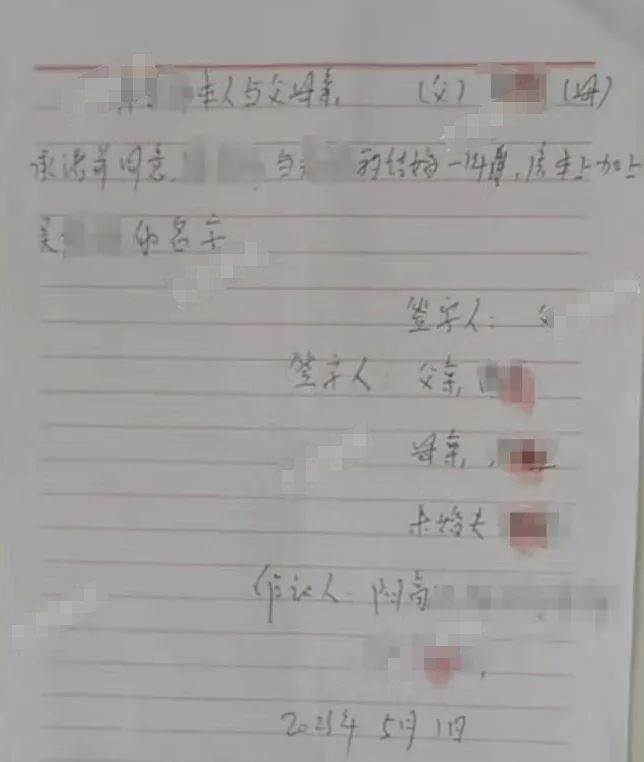 本人与父母亲 (父) (母)
承诺并同意 与 的结婚一年 房本上加上
吴 的名字
签字人: 父
签字人 父亲
母亲
未婚夫
作证人
2023年5月1日